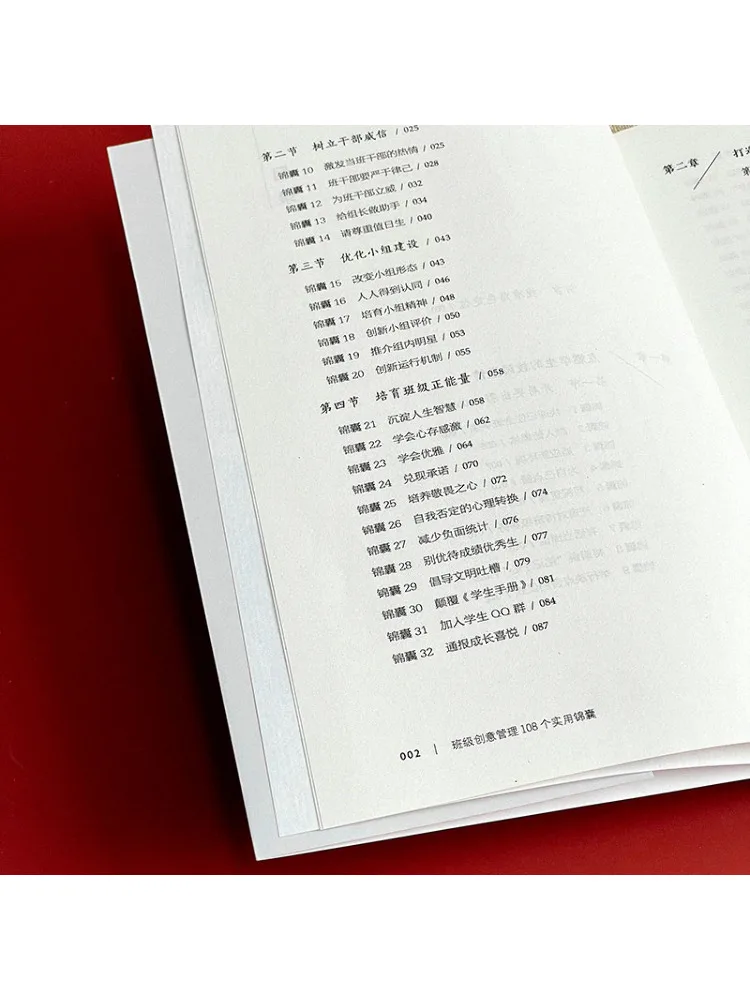 第二节 树立干部威信 / 025
锦囊 10 激发当班干部的热情 / 025
锦囊 11 班干部要严于律己 / 028
锦囊 12 为班干部立威 / 032
锦囊 13 给组长做助手 / 034
锦囊 14 请尊重值日生 / 040
第三节 优化小组建设 / 043
锦囊 15 改变小组形态 / 043
锦囊 16 人人得到认同 / 046
锦囊 17 培育小组精神 / 048
锦囊 18 创新小组评价 / 050
锦囊 19 推介组内明星 / 053
锦囊 20 创新运行机制 / 055
第四节 培育班级正能量 / 058
锦囊 21 沉淀人生智慧 / 058
锦囊 22 学会心存感激 / 062
锦囊 23 学会优雅 / 064
锦囊 24 兑现承诺 / 070
锦囊 25 培养敬畏之心 / 072
锦囊 26 自我否定的心理转换 / 074
锦囊 27 减少负面统计 / 076
锦囊 28 别优待成绩优秀生 / 077
锦囊 29 倡导文明吐槽 / 079
锦囊 30 颠覆《学生手册》/ 081
锦囊 31 加入学生 QQ 群 / 084
锦囊 32 通报成长喜悦 / 087
002 | 班级创意管理 108 个实用锦囊
第二章 打造
第